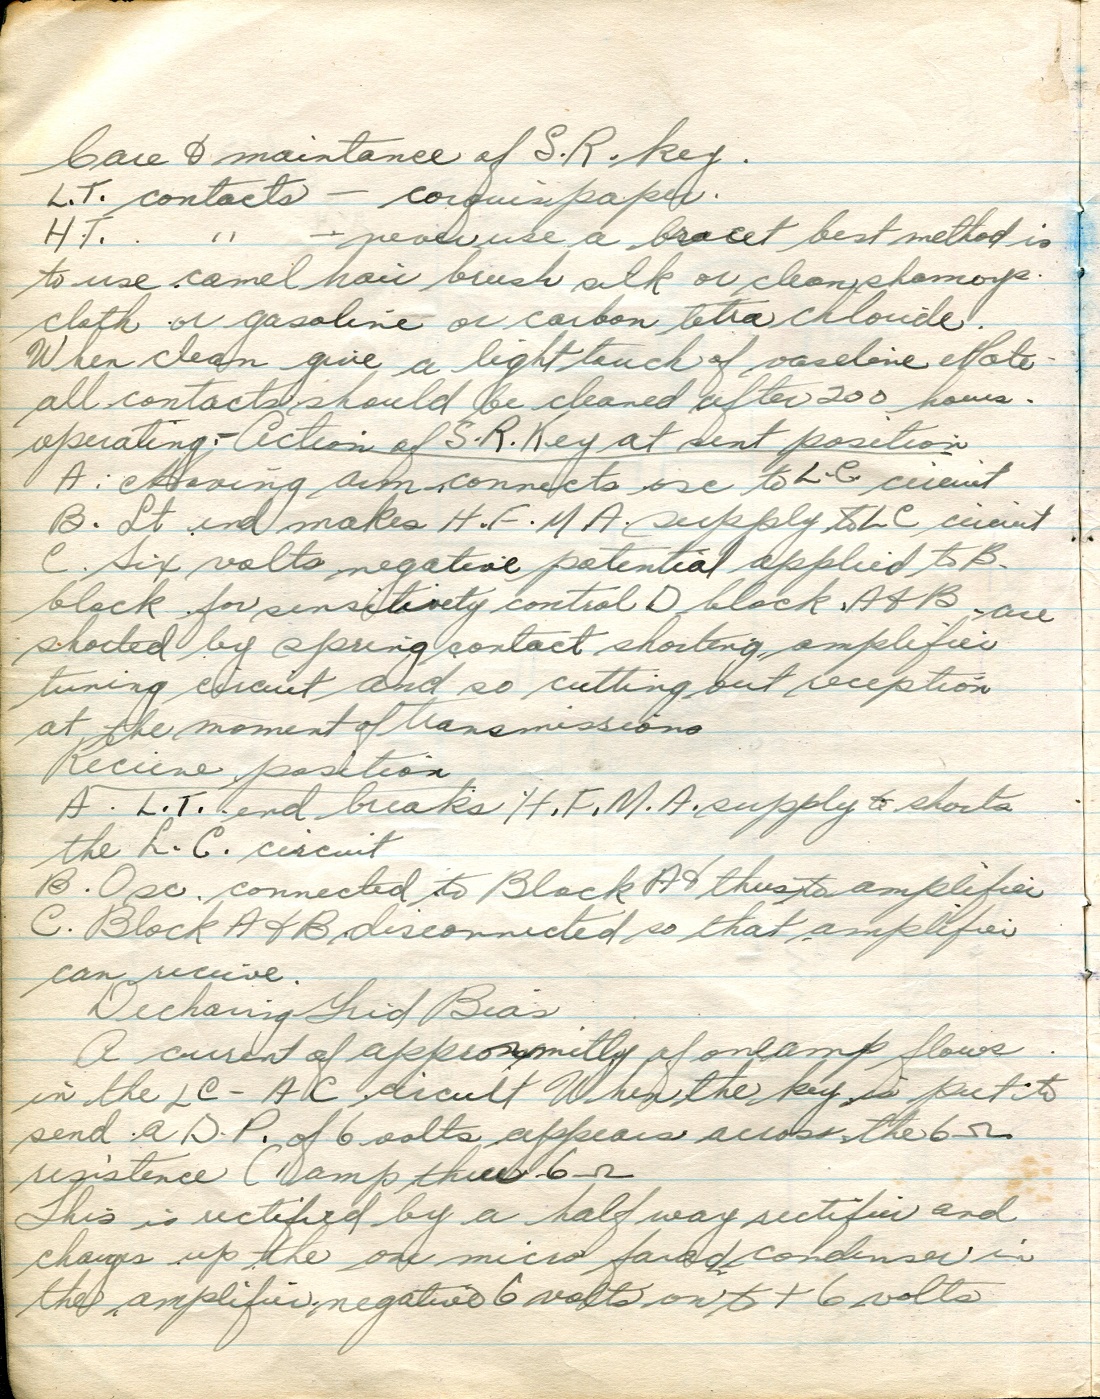 Care & maintance of S.R. key.
L.T. contacts — paper.
H.T. " — never use a bracet best method is
to use camel hair brush silk or clean shamoys
cloth or gasoline or carbon tetra chloride.
When clean give a light touch of vaseline Note
all contacts should be cleaned after 200 hours.
operating:- Action of S.R. Key at sent position
A: Moving arm connects osc to L.C. circuit
B. Lt end makes H.F.M.A. supply to LC circuit
C. Six volts negative potential applied to B.
block for sensitivety control D block A & B are
shorted by spring contact shorting amplifier
tuning circuit and so cutting out reception
at the moment of transmissions
Recieve position
A. L.T. end breaks H.F.M.A. supply & shorts
the L.C. circuit
B. Osc. connected to Block A & thus to amplifier
C. Block A & B disconnected so that amplifier
can receive.
Grid Bias
A current of approxmitly of one amp flows
in the LC - AC circult When the key is put to
send a D.P. of 6 volts appears across the 6 Ω
resistence (1 amp thru 6 Ω
This is rectified by a half way rectifier and
charges up the one micro farad condenser in
the amplifier negative 6 volts on to + 6 volts